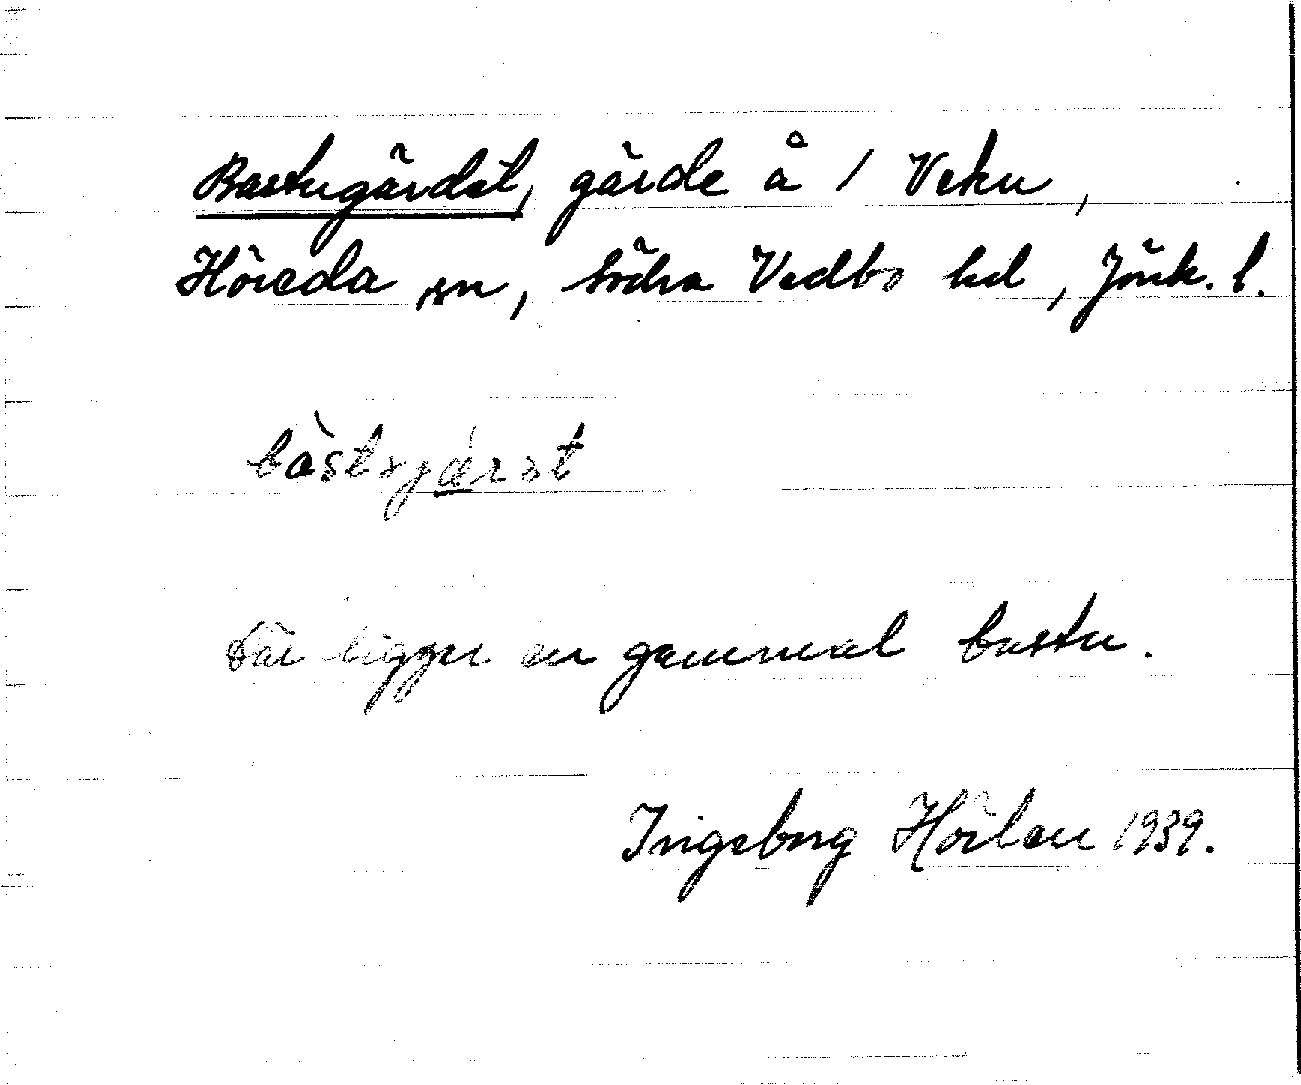 Bastugärdet, gärde å 1 Veku,
Höreda sn, Södra Vedbo hd, Jönk. l.
bàstɤjæ̲rɤt
Där ligger en gammal bastu.
Ingeborg Hörlau 1939.